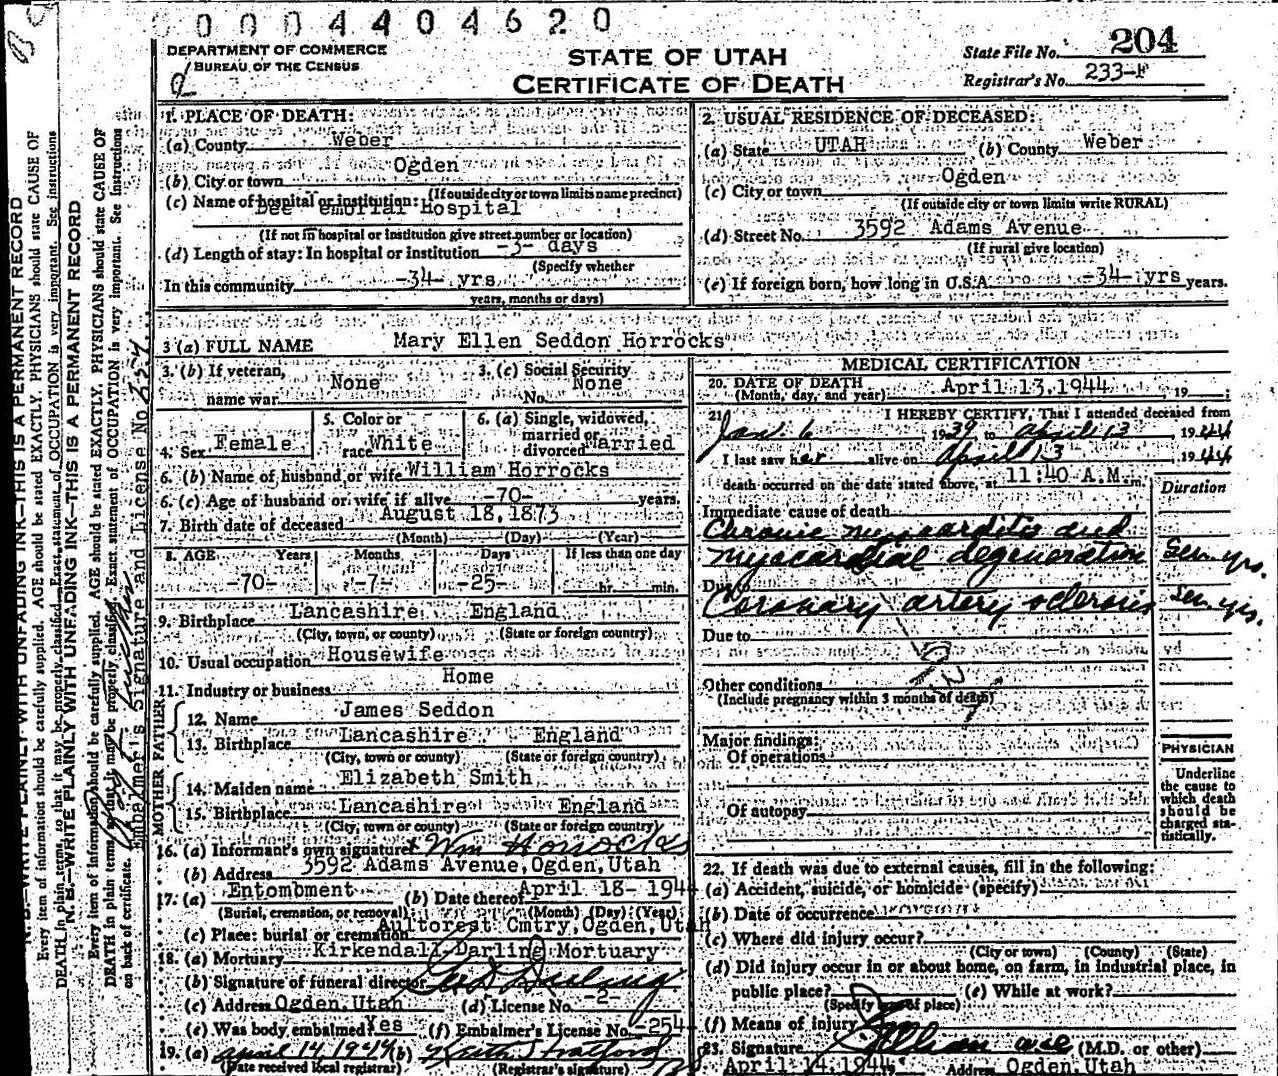 0004404620
DEPARTMENT OF COMMERCE
BUREAU OF THE CENSUS
STATE OF UTAH
CERTIFICATE OF DEATH
State File No. 204
Registrar's No. 233-F
1. PLACE OF DEATH:
(a) County Weber
(b) City or town Ogden
(If outside city or town limits name precinct)
(c) Name of hospital or institution: Dee emorial Hospital
(If not in hospital or institution give street number or location)
(d) Length of stay: In hospital or institution -3- days
(Specify whether
In this community -34- yrs
years, months or days)
2. USUAL RESIDENCE OF DECEASED:
(a) State UTAH (b) County Weber
(c) City or town Ogden
(If outside city or town limits write RURAL)
(d) Street No. 3592 Adams Avenue
(If rural give location)
(e) If foreign born, how long in U.S.A. -34- yrs years.
3 (a) FULL NAME Mary Ellen Seddon Horrocks
3. (b) If veteran, name war None
3. (c) Social Security No. None
4. Sex Female
5. Color or race White
6. (a) Single, widowed, married or divorced Married
6. (b) Name of husband or wife William Horrocks
6. (c) Age of husband or wife if alive -70- years.
7. Birth date of deceased August 18, 1873
(Month) (Day) (Year)
8. AGE Years Months Days If less than one day
-70- -7- -25- hr. min.
9. Birthplace Lancashire England
(City, town, or county) (State or foreign country)
10. Usual occupation Housewife
11. Industry or business Home
FATHER
12. Name James Seddon
13. Birthplace Lancashire England
(City, town or county) (State or foreign country)
MOTHER
14. Maiden name Elizabeth Smith
15. Birthplace Lancashire England
(City, town or county) (State or foreign country)
16. (a) Informant's own signature Wm Horrocks
(b) Address 3592 Adams Avenue, Ogden, Utah
17. (a) Entombment (b) Date thereof April 18- 1944
(Burial, cremation, or removal) (Month) (Day) (Year)
(c) Place: burial or cremation Aultorest Cmtry, Ogden, Utah
18. (a) Mortuary Kirkendall Darling Mortuary
(b) Signature of funeral director Geo D Darling
(c) Address Ogden, Utah (d) License No. -2-
(e) Was body embalmed? Yes (f) Embalmer's License No. -254-
19. (a) April 14 1944 (b) Keith Stratford
(Date received local registrar) (Registrar's signature)
MEDICAL CERTIFICATION
20. DATE OF DEATH April 13, 1944, 19
(Month, day, and year)
21. I HEREBY CERTIFY, That I attended deceased from
Jan. 6 1939 to April 13 1944
I last saw her alive on April 13 1944
death occurred on the date stated above, at 11:40 A.M. m.
Duration
Immediate cause of death
Chronic myocarditis and
myocardial degeneration Sev. yrs.
Due to
Coronary artery sclerosis Sev. yrs.
Due to
Other conditions
(Include pregnancy within 3 months of death)
Major findings:
Of operations
Of autopsy
PHYSICIAN
Underline the cause to which death should be charged statistically.
22. If death was due to external causes, fill in the following:
(a) Accident, suicide, or homicide (specify)
(b) Date of occurrence
(c) Where did injury occur?
(City or town) (County) (State)
(d) Did injury occur in or about home, on farm, in industrial place, in
public place? (e) While at work?
(Specify type of place)
(f) Means of injury
23. Signature (M.D. or other)
April 14, 1944 Address Ogden, Utah
N. B.—WRITE PLAINLY WITH UNFADING INK—THIS IS A PERMANENT RECORD
Every item of information should be carefully supplied. AGE should be stated EXACTLY. PHYSICIANS should state CAUSE OF
DEATH in plain terms, so that it may be properly classified. Exact statement of OCCUPATION is very important. See instructions
on back of certificate.
Embalmer's Signature and License No. 254